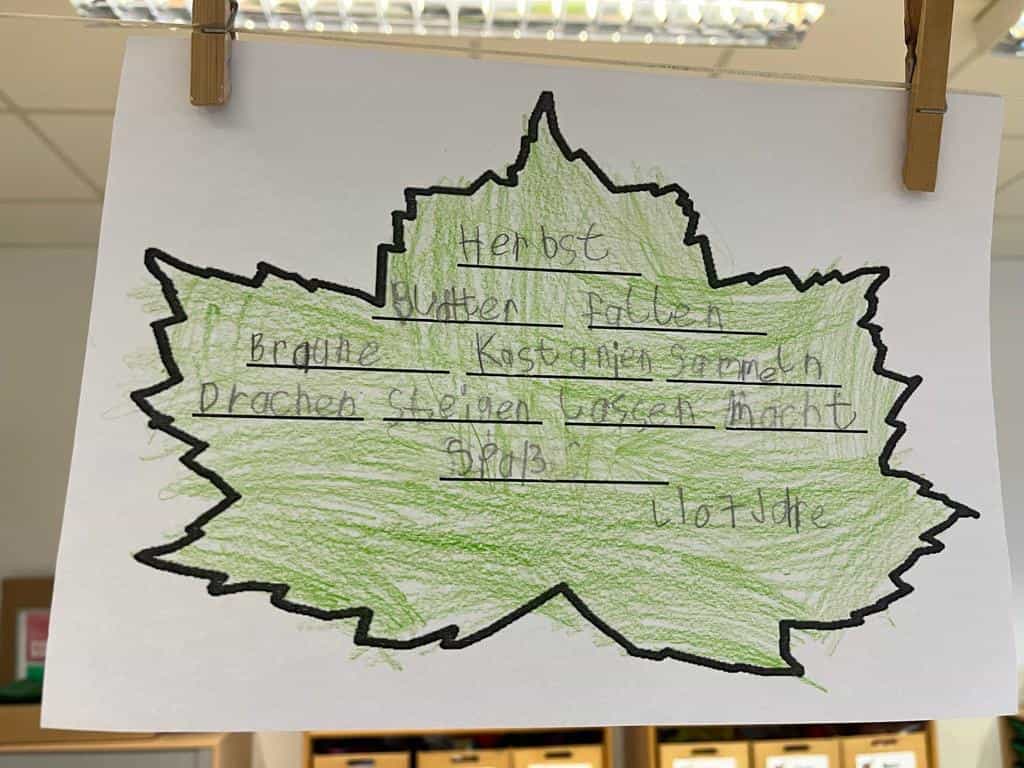 Herbst
Blätter fallen
Braune Kastanjen sammeln
Drachen steigen Lassen Macht
Spaß
Lio 7 Jahre